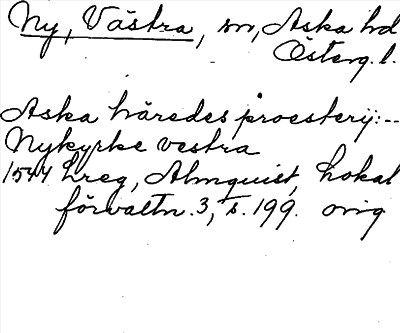 Ny, Västra, sn, Aska hd
Österg. l.
Aska häredes proesterij:--
Nykyrke vestra
1544 Lreg, Almquist, Lokal
förvaltn. 3, s. 199. orig